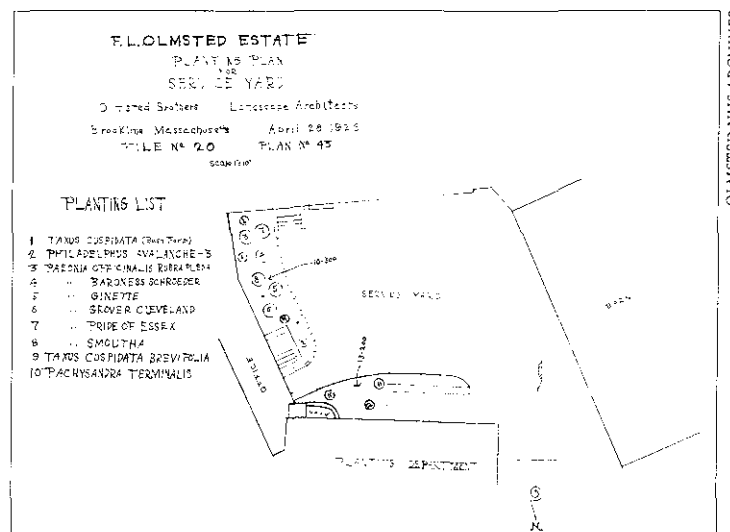 F. L. OLMSTED ESTATE
PLANTING PLAN
FOR
SERVICE YARD
Olmsted Brothers Landscape Architects
Brookline Massachusetts April 28 1925
FILE Nº 20 PLAN Nº 45
PLANTING LIST
1 TAXUS CUSPIDATA
2 PHILADELPHUS AVALANCHE-3
3 PAEONIA OFFICINALIS RUBRA PLENA
4 " BARONESS SCHROEDER
5 " GINETTE
6 " GROVER CLEVELAND
7 " PRIDE OF ESSEX
8 " SMOUTHA
9 TAXUS CUSPIDATA BREVIFOLIA
10 PACHYSANDRA TERMINALIS
10-300
SERVICE YARD
BARN
OFFICE
10-200
WALK
PLANTING DEPARTMENT
N